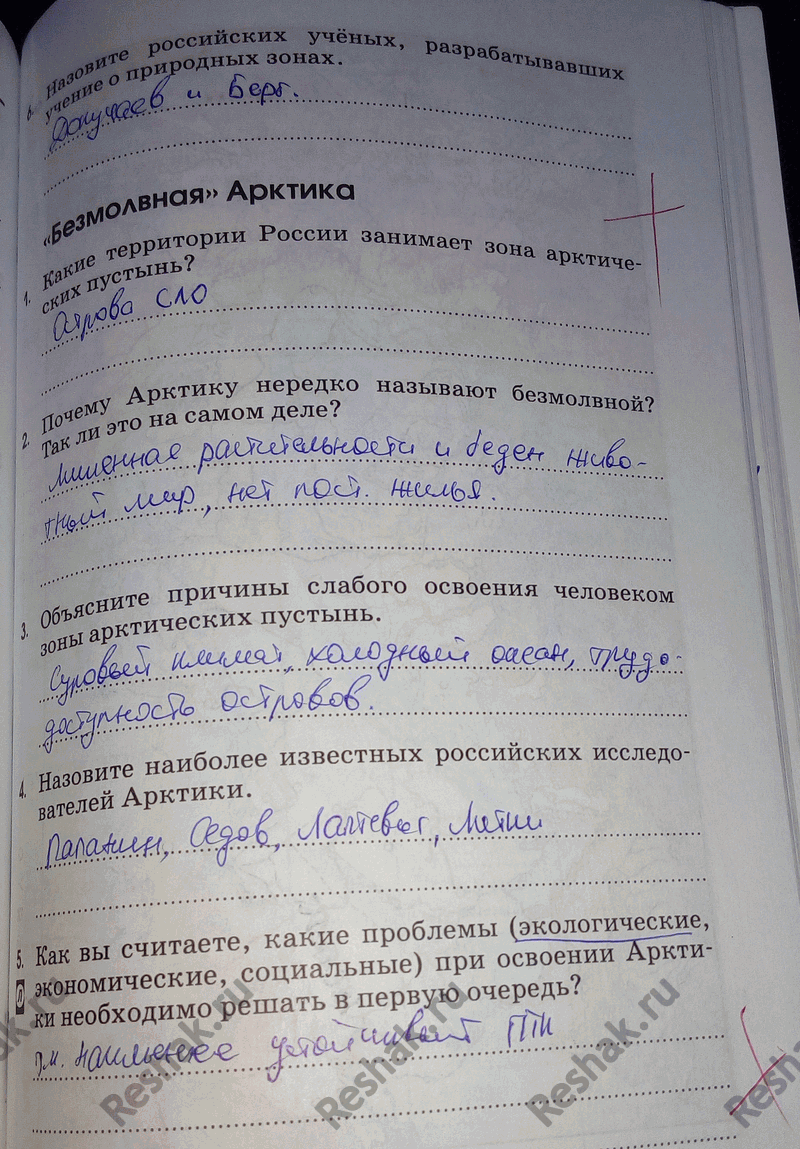 6. Назовите российских учёных, разрабатывавших
учение о природных зонах.
Докучаев и Берг.
«Безмолвная» Арктика
1. Какие территории России занимает зона арктиче-
ских пустынь?
Острова СЛО
2. Почему Арктику нередко называют безмолвной?
Так ли это на самом деле?
Лишенная растительности и беден живо-
тный мир, нет пост. жилья.
3. Объясните причины слабого освоения человеком
зоны арктических пустынь.
Суровый климат, холодный океан, трудо-
доступность островов.
4. Назовите наиболее известных российских исследо-
вателей Арктики.
Папанин, Седов, Лаптевы, Литки
5. Как вы считаете, какие проблемы (экологические,
экономические, социальные) при освоении Аркти-
ки необходимо решать в первую очередь?
наименее ПТК
Reshak.ru Reshak.ru Reshak.ru Reshak.ru Reshak.ru